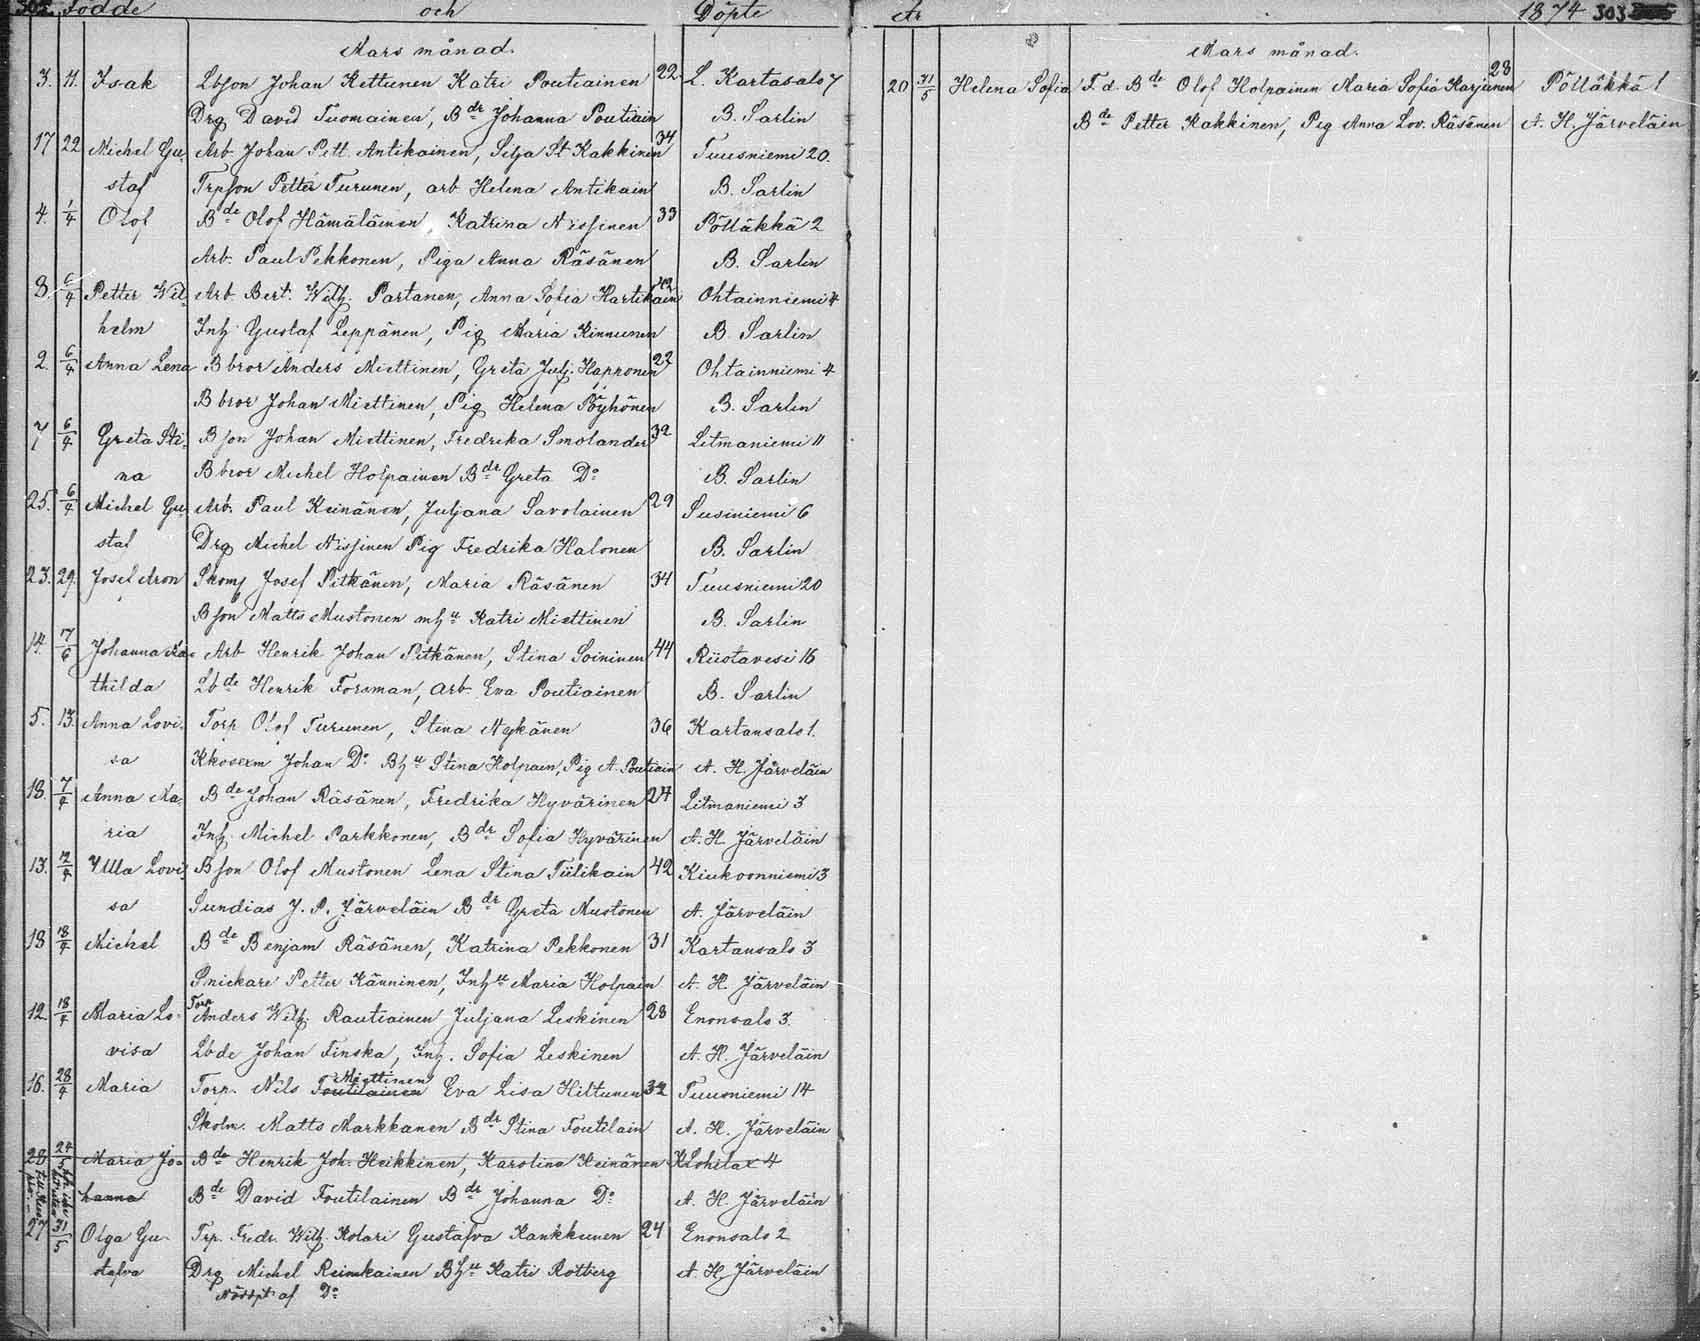 302 Födde och Döpte
Mars månad.
3. 11. Isak Lbson Johan Kettunen Katri Poutiainen 22 L. Kartasalo 7
Drg David Tuomainen, Bdr Johanna Poutiain B. Sarlin
17 22 Michel Gu Arb. Johan Pett. Antikainen, Silja St Kakkinen 34 Tuusniemi 20.
staf Trpson Petter Turunen, arb Helena Antikain B. Sarlin
4. 1/4 Olof Bde Olof Hämäläinen, Katrina Nissinen 33 Pölläkkä 2
Arb. Paul Pekkonen, Piga Anna Räsänen B. Sarlin
8 6/4 Petter Wil- Arb. Bert. Wilh. Partanen, Anna Sofia Hartikain 42 Ohtainniemi 4
helm Inh Gustaf Leppänen, Pig Maria Kinnunen B. Sarlin
2. 6/4 Anna Lena B bror Anders Miettinen, Greta Julj. Happonen 22 Ohtainniemi 4
B bror Johan Miettinen, Pig Helena Pöyhönen B. Sarlin
7 6/4 Greta Sti- Bson Johan Miettinen, Fredrika Smolander 32 Litmaniemi 11
na B bror Michel Holpainen Bdr Greta Do B. Sarlin
25. 6/4 Michel Gu- Arb. Paul Keinänen, Juljana Savolainen 29 Susiniemi 6
staf Drg Michel Nissinen Pig Fredrika Halonen B. Sarlin
23. 29. Josef Aron Skom Josef Pitkänen, Maria Räsänen 34 Tuusniemi 20
Bson Matts Mustonen mhu Katri Miettinen B. Sarlin
14. 7/6 Johanna Ma- Arb Henrik Johan Pitkänen, Stina Soininen 44 Riistavesi 16
thilda Lbde Henrik Forsman, arb. Eva Poutiainen B. Sarlin
5. 13. Anna Lovi- Torp Olof Turunen, Stina Nykänen 36 Kartansalo 1.
sa Kkosexm Johan Do Bhu Stina Holpain, Pig A. Poutiain A. H. Järveläin
18. 7/4 Anna Ma- Bde Johan Räsänen, Fredrika Hyvärinen 27 Litmaniemi 3
ria Inh. Michel Parkkonen, Bdr Sofia Hyvärinen A. H. Järveläin
13. 12/4 Ulla Lovi- Bson Olof Mustonen Lena Stina Tiilikain 42 Kiukoonniemi 3
sa Sundias J. P. Järveläin Bdr Greta Mustonen A. Järveläin
18 18/4 Michel Bde Benjam Räsänen, Katrina Pekkonen 31 Kartansalo 3
Snickare Petter Känninen, Inhu Maria Holpain A. H. Järveläin
12 18/4 Maria Lo- Torp Anders Wilh. Rautiainen Juljana Leskinen 28 Enonsalo 3.
visa Lbde Johan Finska, Inh. Sofia Leskinen A. H. Järveläin
16. 28/4 Maria Torp. Nils Toutilainen Miettinen Eva Lisa Hiltunen 32 Tuusniemi 14
Skolm. Matts Markkanen Bdr Stina Toutilain A. H. Järveläin
28 24/5 Maria Jo- Bde Henrik Joh. Heikkinen, Karolina Heinänen Kohilax 4
hanna Bde David Toutilainen Bdr Johanna Do A. H. Järveläin
27 31/5 Olga Gu- Trp. Fredr. Wilh. Kolari Gustafva Kankkunen 24 Enonsalo 2
stafva Drg Michel Reinikainen Bhu Katri Rotberg A. H. Järveläin
Nödpt af Do
År 1874 303
Mars månad.
20 31/5 Helena Sofia F. d. Bde Olof Holpainen Maria Sofia Karjunen 28 Pölläkkä 1
Bde Petter Kakkinen, Pig Anna Lov. Räsänen A. H. Järveläin